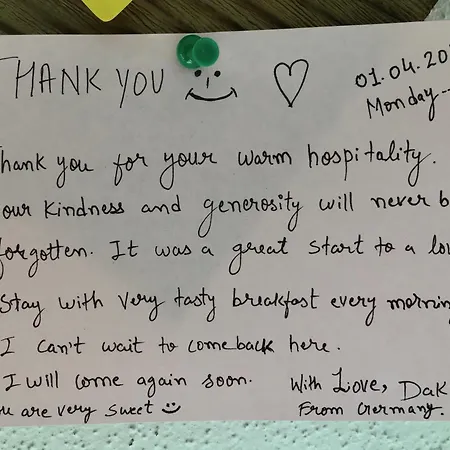 THANK YOU
01.04.20
Monday
Thank you for your warm hospitality.
our kindness and generosity will never b
forgotten. It was a great start to a lo
Stay with very tasty breakfast every morning
I can't wait to comeback here.
I will come again soon.
With Love, Dak
u are very sweet
From Germany.